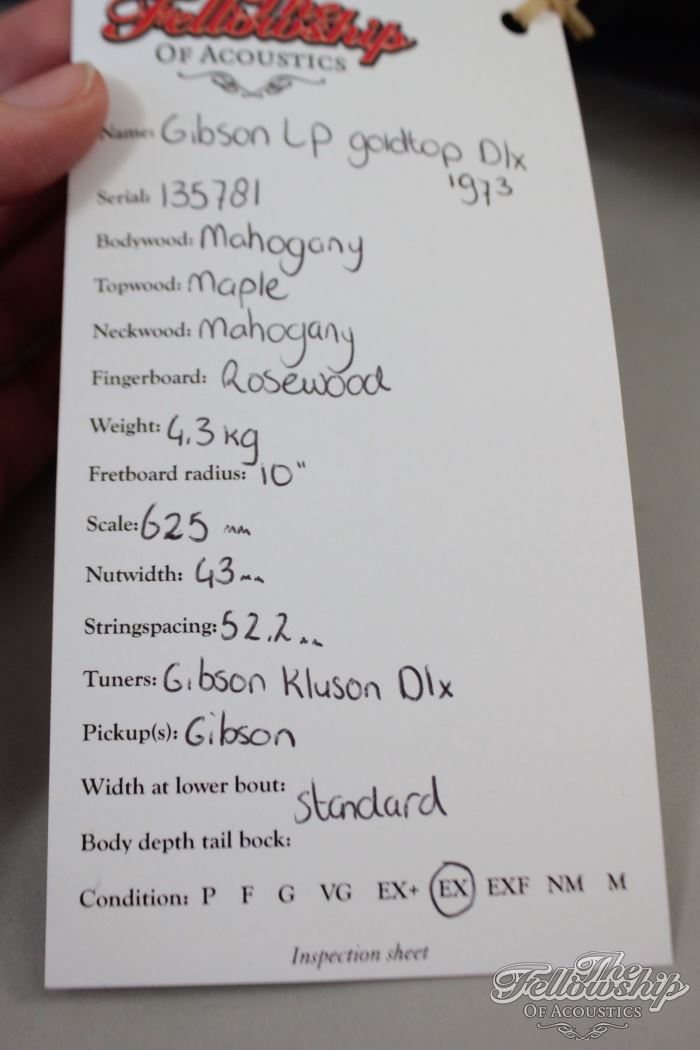 The
Fellowship
OF ACOUSTICS
Name: Gibson LP goldtop Dlx
1973
Serial: 135781
Bodywood: Mahogany
Topwood: Maple
Neckwood: Mahogany
Fingerboard: Rosewood
Weight: 4,3 kg
Fretboard radius: 10"
Scale: 625 mm
Nutwidth: 43mm
Stringspacing: 52,2 mm
Tuners: Gibson Kluson Dlx
Pickup(s): Gibson
Width at lower bout: standard
Body depth tail bock:
Condition: P F G VG EX+ EX EXF NM M
Inspection sheet
The
Fellowship
OF ACOUSTICS